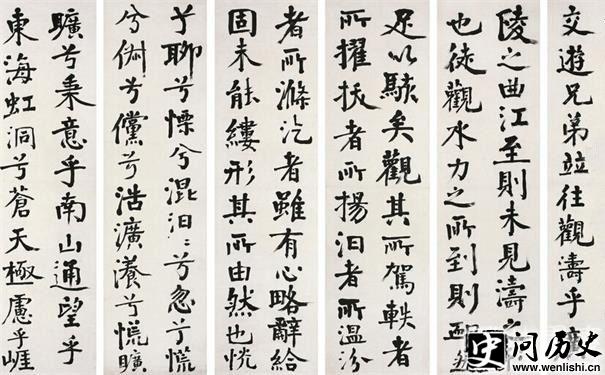 交遊兄弟竝往觀濤乎
陵之曲江至則未見濤之
也徒觀水力之所到則卹
足以駭矣觀其所駕軼者
所擢拔者所揚汩者所溫汾
者所滌汔者雖有心略辭給
固未能縷形其所由然也怳
兮聊兮慄兮混汩〻兮忽兮慌
兮俶兮儻兮浩瀇瀁兮慌曠
曠兮秉意乎南山通望乎
東海虹洞兮蒼天極慮乎崕
问历史
www.wenlishi.cn